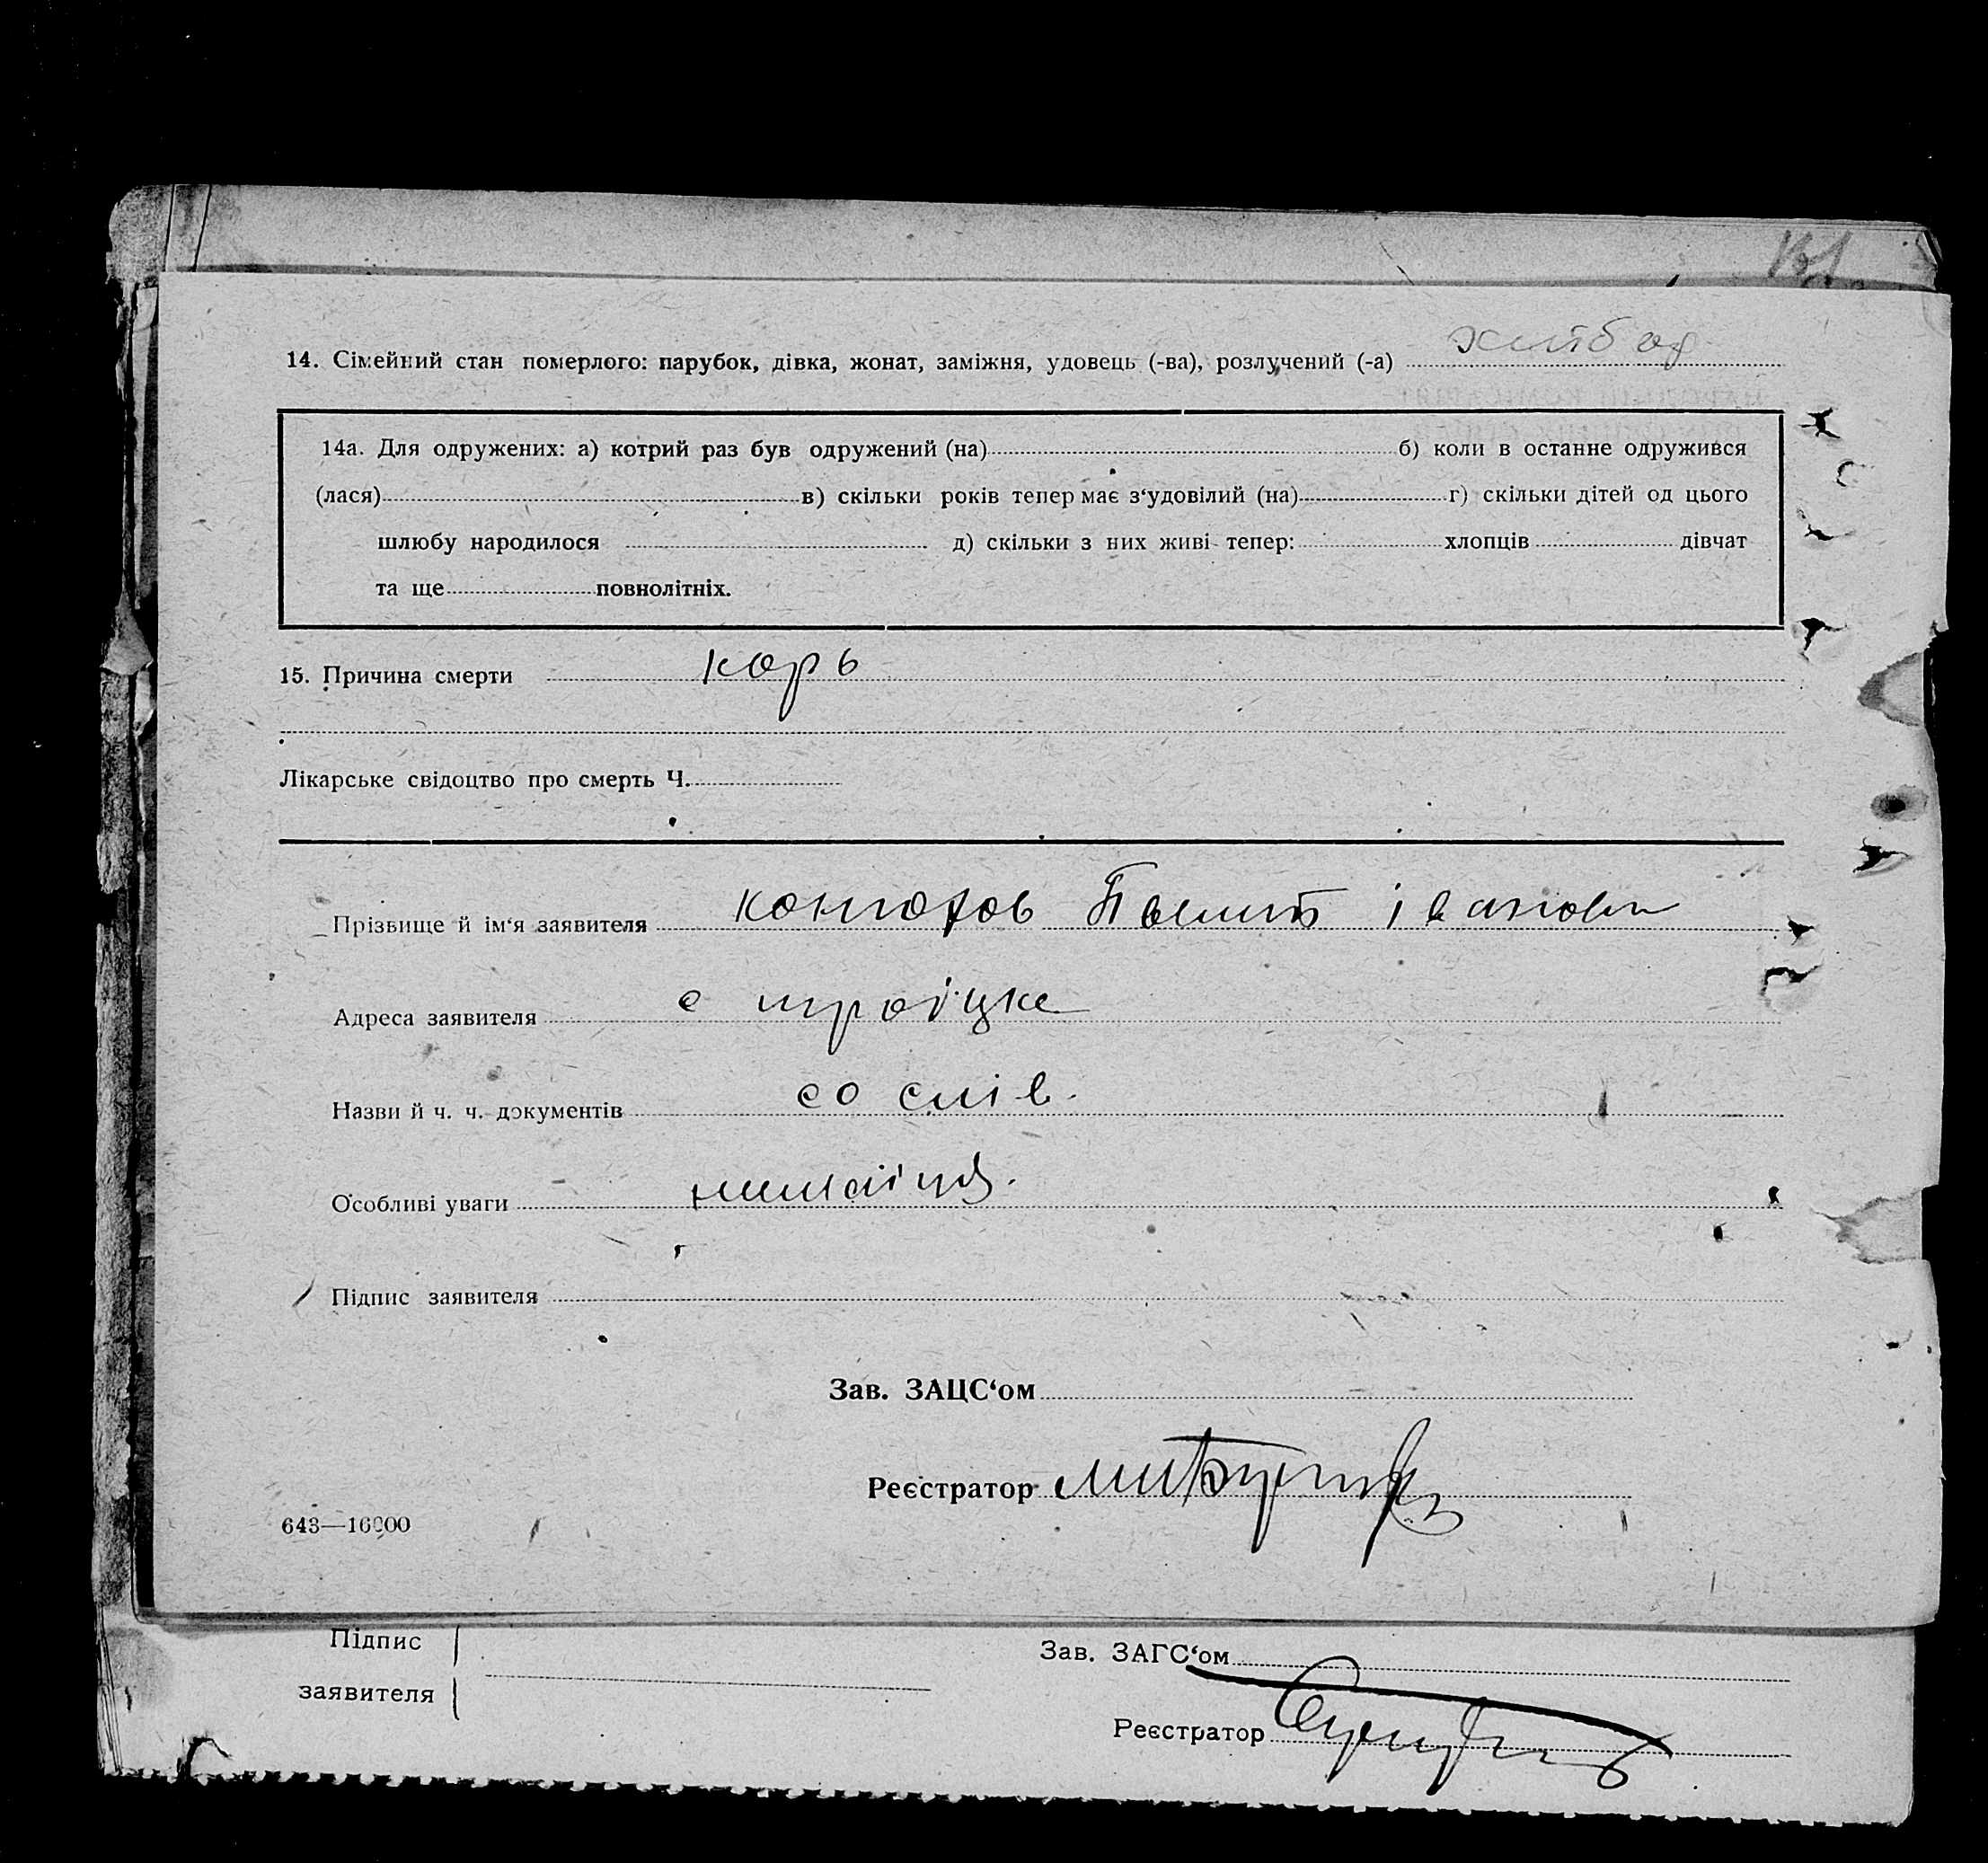 14. Сімейний стан померлого: парубок, дівка, жонат, заміжня, удовець (-ва), розлучений (-а)
14а. Для одружених: а) котрий раз був одружений (на) б) коли в останне одружився
(лася) в) скільки років тепер має з‘удовілий (на) г) скільки дітей од цього
шлюбу народилося д) скільки з них живі тепер: хлопців дівчат
та ще повнолітніх.
15. Причина смерти корь
Лікарське свідоцтво про смерть Ч.
Прізвище й ім‘я заявителя
Адреса заявителя с троіцке
Назви й ч. ч. документів со слів.
Особливі уваги
Підпис заявителя
Зав. ЗАЦС‘ом
Реєстратор
643—16000
Підпис
заявителя
Зав. ЗАГС‘ом
Реєстратор